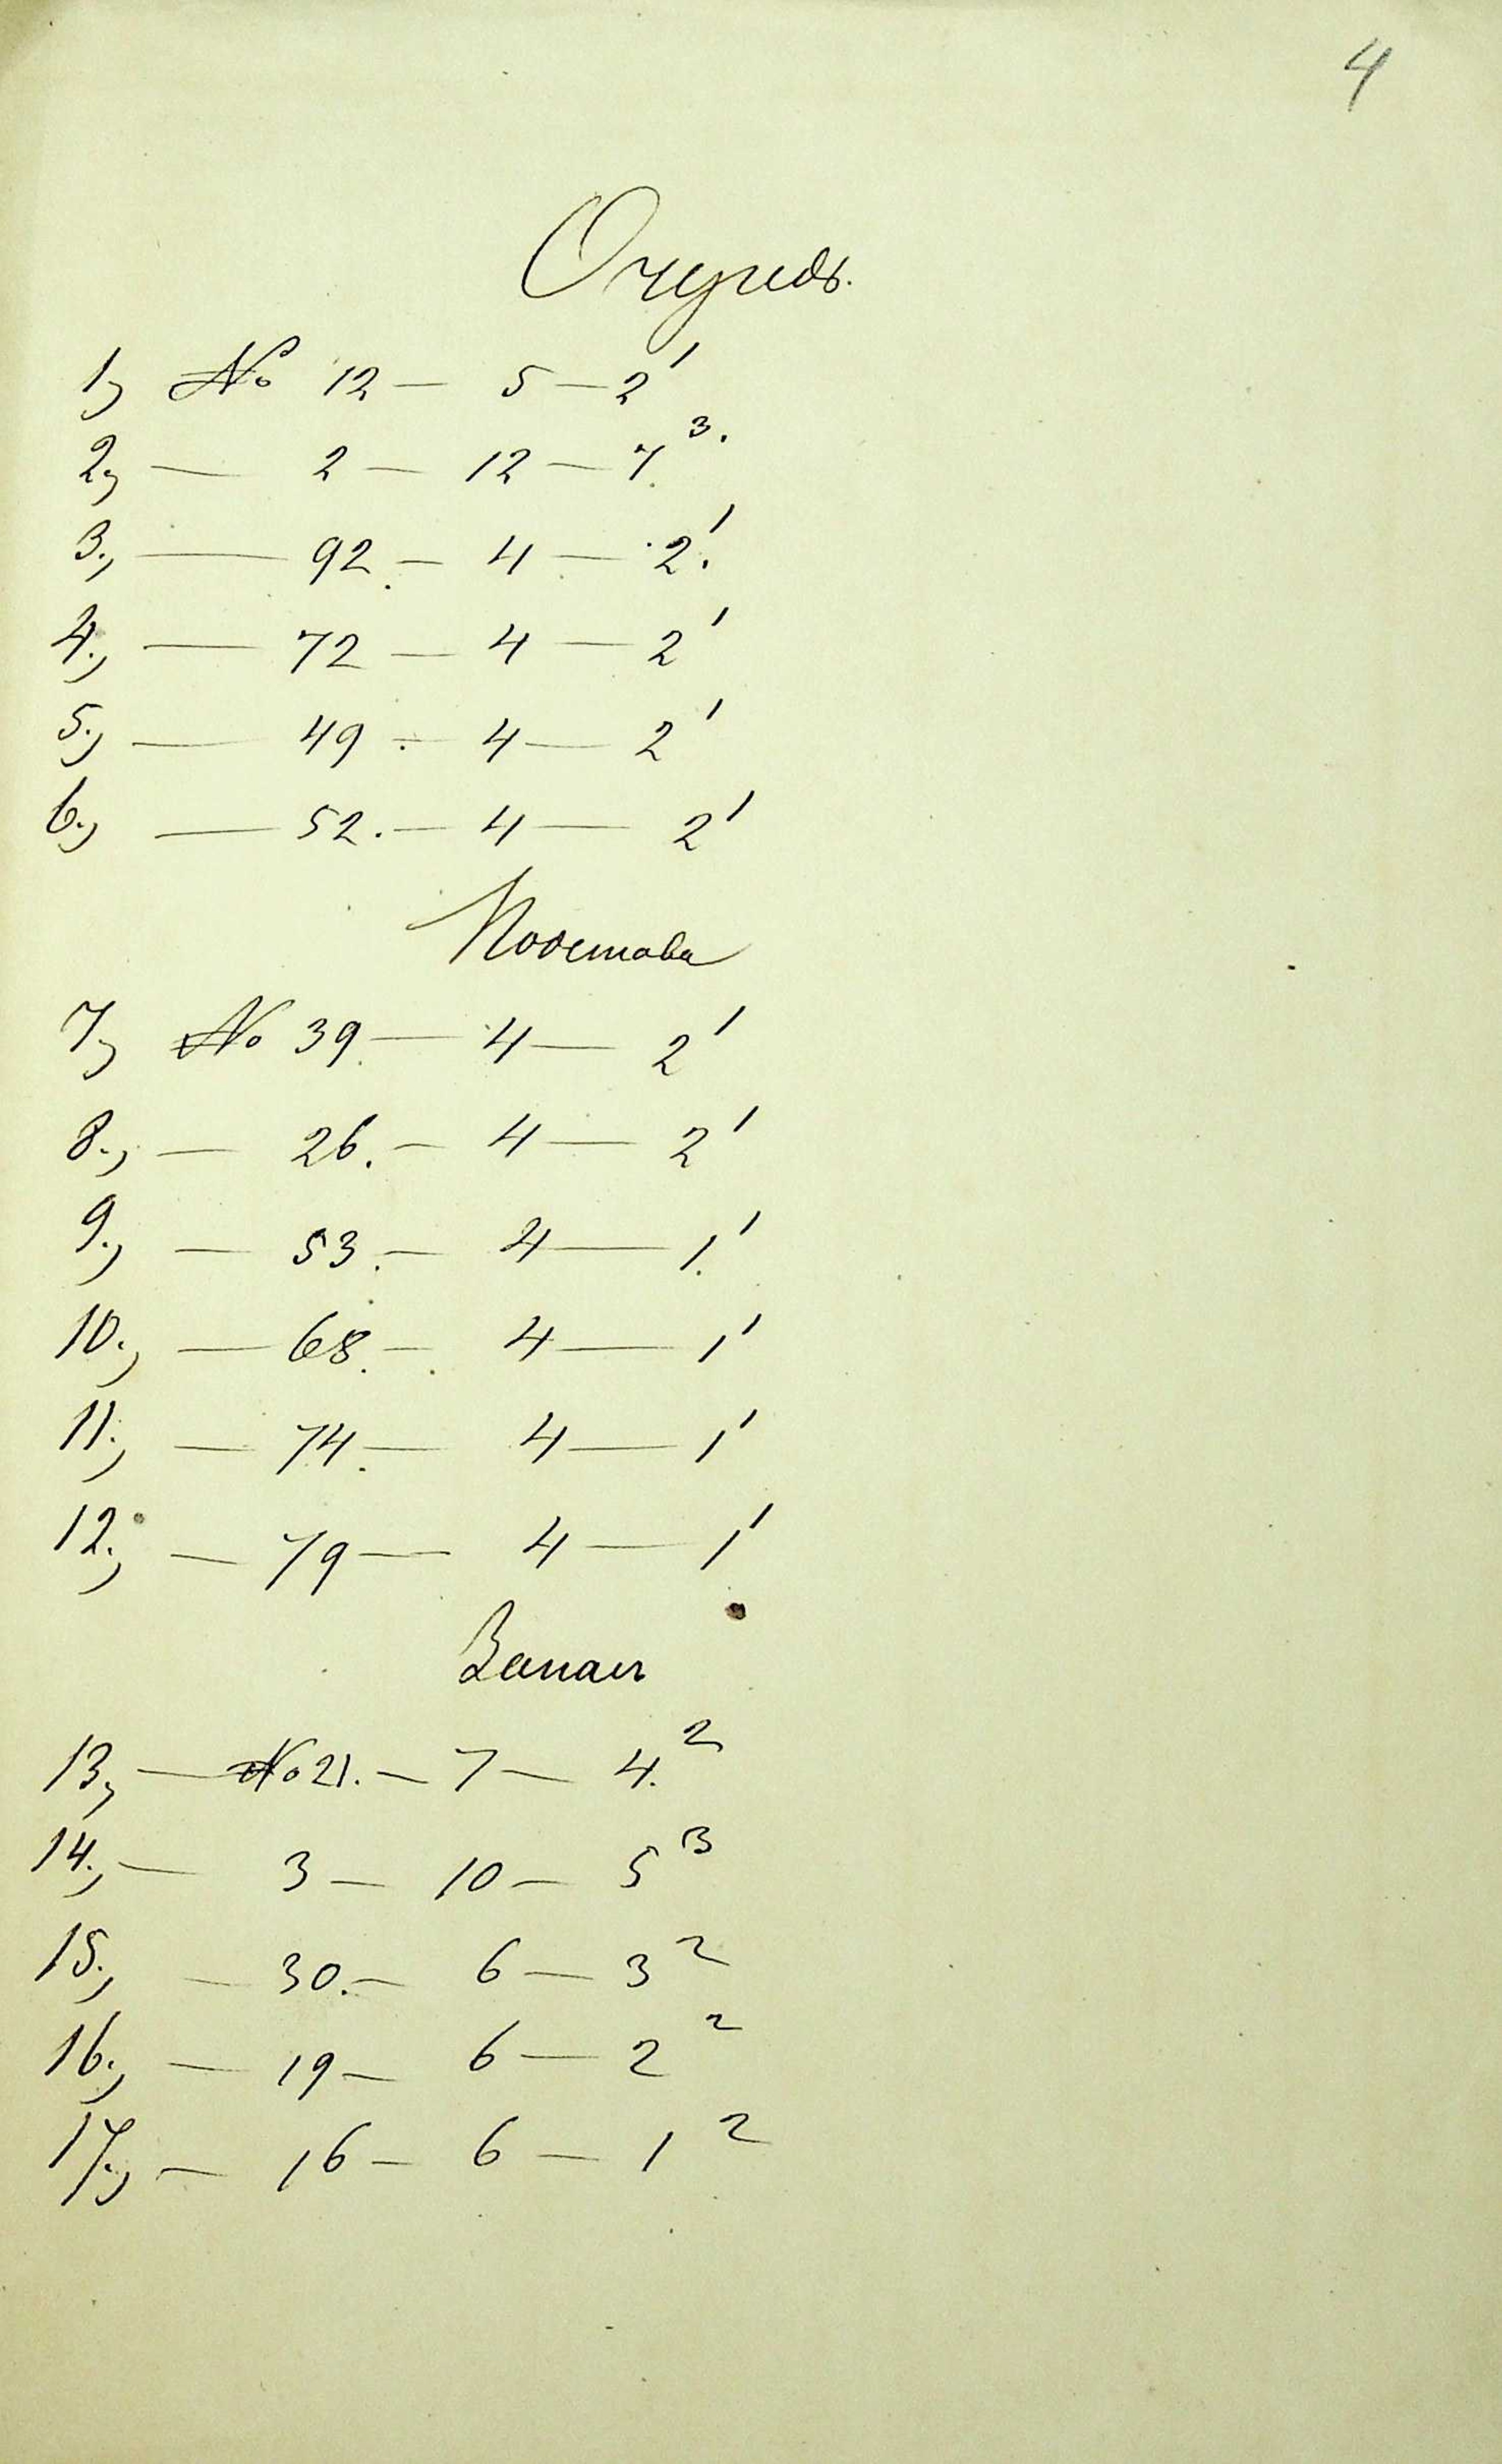 4
Очередь.
1, № 12 — 5 — 2¹
2, — 2 — 12 — 7³.
3., — 92. — 4 — 2¹.
4., — 72 — 4 — 2¹
5., — 49 — 4 — 2¹
6., — 52. — 4 — 2¹
Подстава
7, № 39. — 4 — 2¹
8., — 26. — 4 — 2¹
9., — 53. — 4 — 1.¹
10., — 68. — 4 — 1¹
11., — 74. — 4 — 1¹
12., — 79 — 4 — 1¹
Запась
13, — № 21. — 7 — 4.²
14., — 3 — 10 — 5³
15., — 30. — 6 — 3²
16., — 19 — 6 — 2²
17., — 16 — 6 — 1²